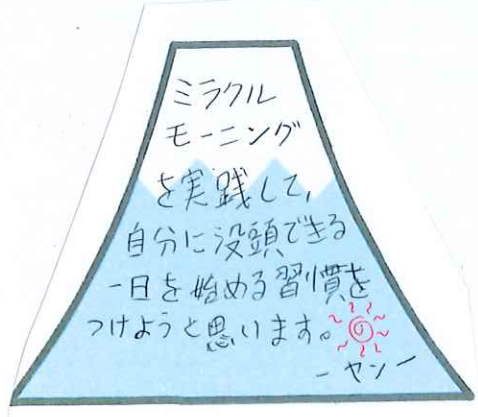 ミラクル
モーニング
を実践して、
自分に没頭できる
一日を始める習慣を
つけようと思います。
ーヤンー